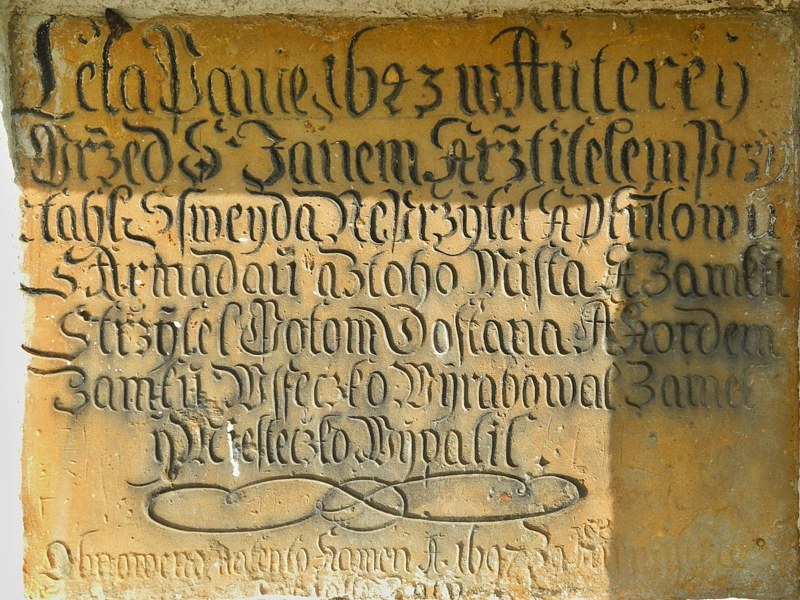 Leta Panie 1643 w Auterey
Przed S Janem Krztitelem Przy
tahl Ssweyda Neprzytel A pkulowu
S Armadau a Ztoho Mista K Zamku
Strzylel Potom Dostana Akordem
Zamku Wsseczko Wyrabowal Zamek
y Miesteczko Wypalil
Kamen A 1697